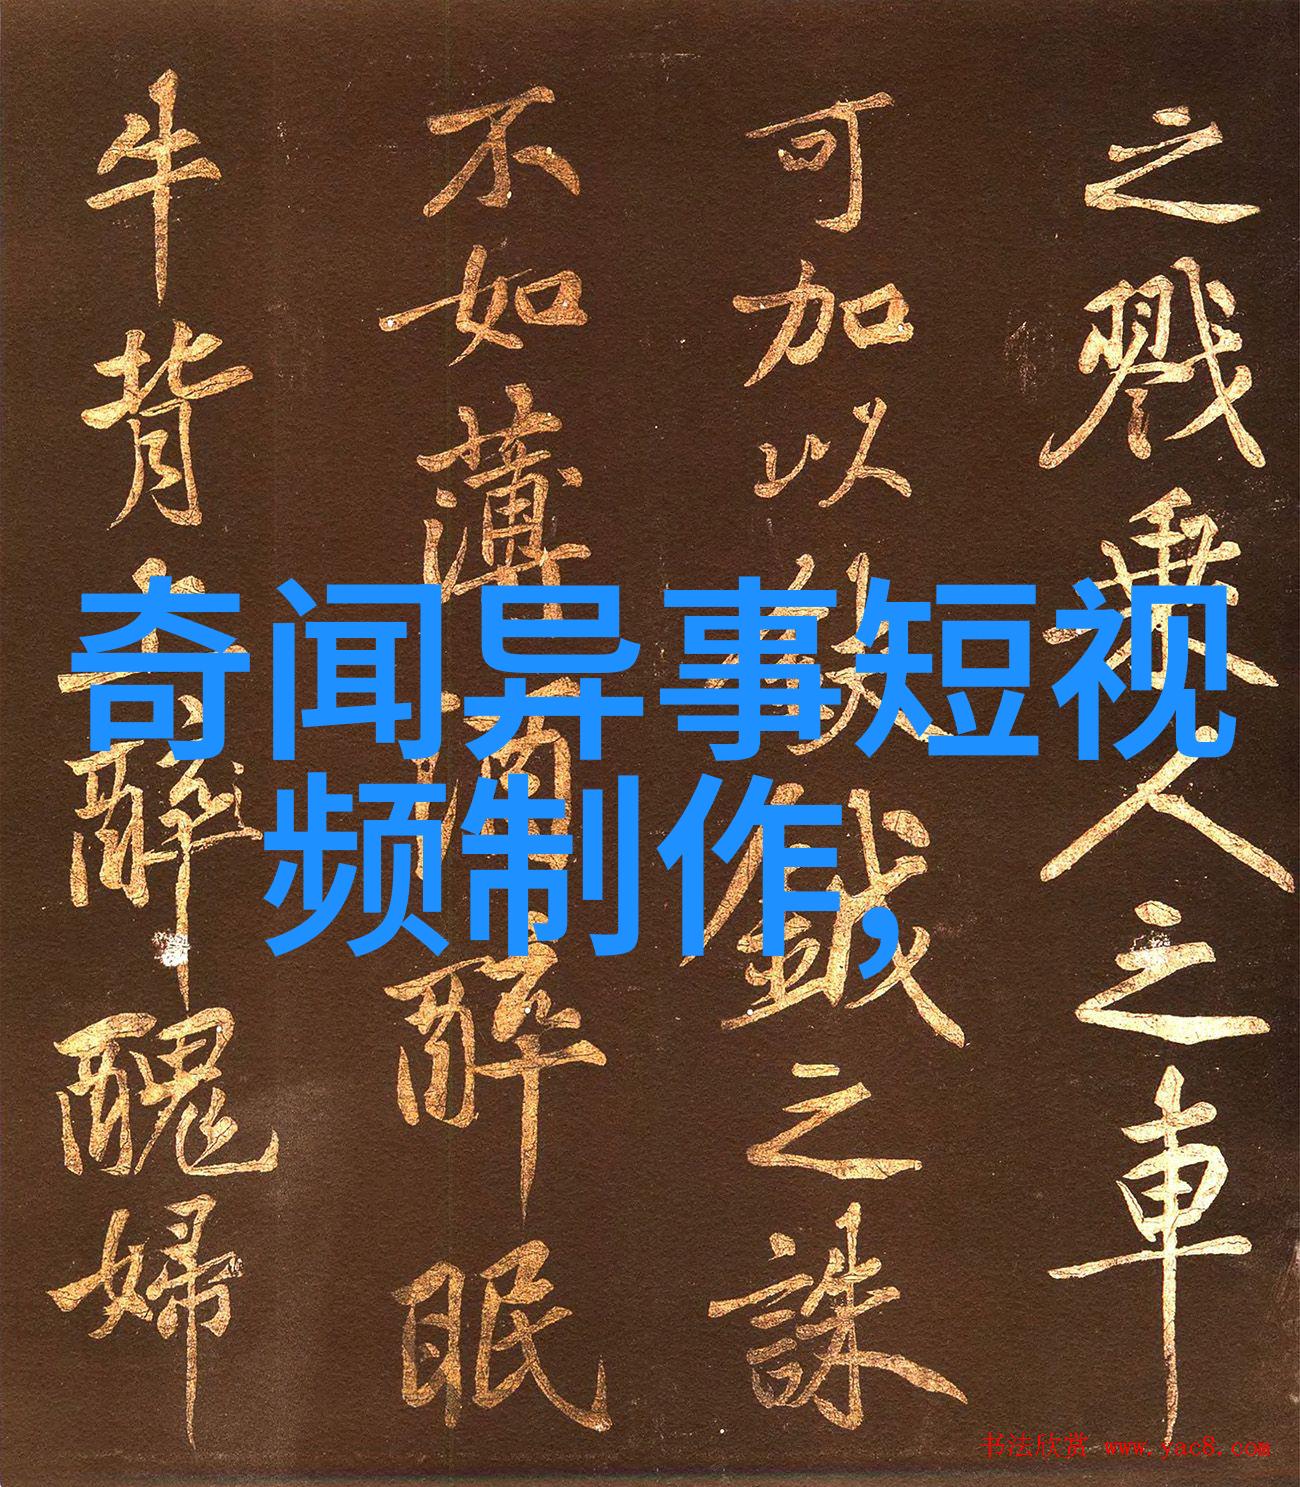 之戮乘人之車
可加以鉞之誅
不如薄酒醉眠
牛背上醉醜婦
奇闻异事短视
频制作,
书法欣赏 www.yac8.com